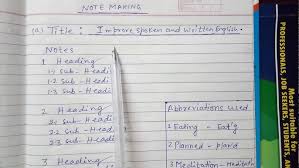 NOTE MAKING
(a) Title : Improve spoken and written English.
Notes
1 Heading
1.1 Sub - Headi
1.2 Sub - Headi
1.3 Sub - Headi
2 Heading
2.1 Sub - Headi
2.2 Sub - Headi
2.3 Sub - Headi
3 Heading
Abbreviations Used
1 Eating - Eat'g
2 Planned - pla'd
3 Meditation - Meditati
Most suitable for
PROFESSIONALS, JOB SEEKERS, STUDENTS,